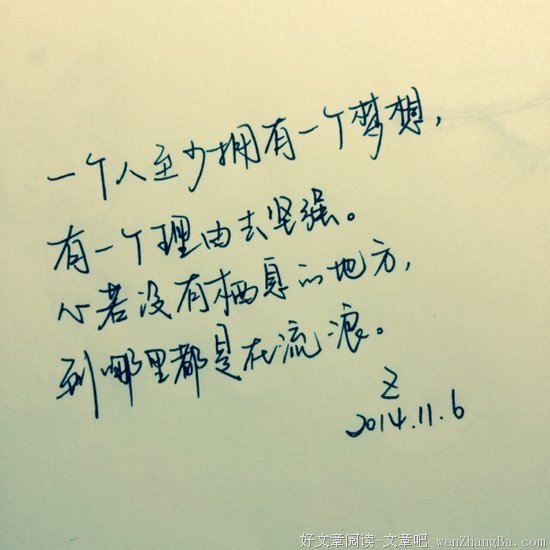 一个人至少拥有一个梦想，
有一个理由去坚强。
心若没有栖息的地方，
到哪里都是在流浪。
Z
2014.11.6
好文章阅读-文章吧 wenZhangBa.com